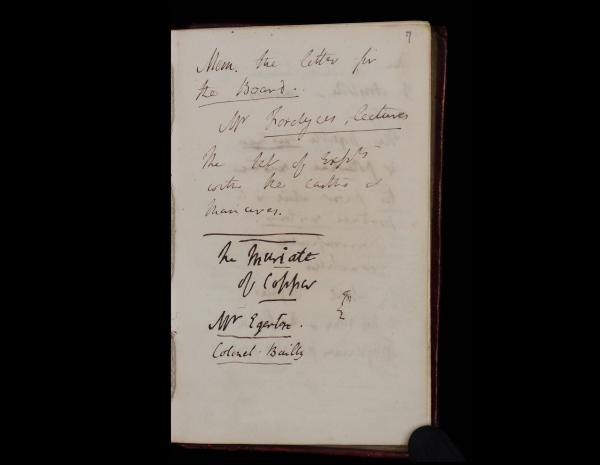 7
Mem. the letter for
the Board.
Mr Fordyces, lectures
The let of Expts
with the earths &
Manures.
The Muriate
of Copper
Mr Egerton.
Colonel Bailly